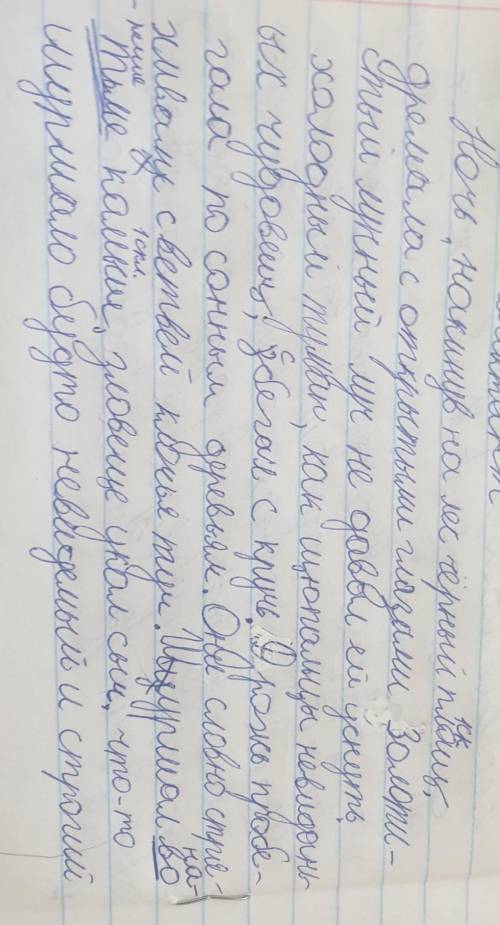 Ночь, накинув на лес чёрный плащ,
дремала с открытыми глазами. Золоти-
стый лунный луч не давал ей уснуть.
холодный туман, как щюпальцы невидан
ых чудовещ, збегал с кручь. Дрожь пробе-
гала по сонным деревьям. Они словно стря-
хивали с ветвей клочья туч. Шуршал во
тьме камыш, зловеще ухал сыч, что-то
шуршало будто невидемый и строгий